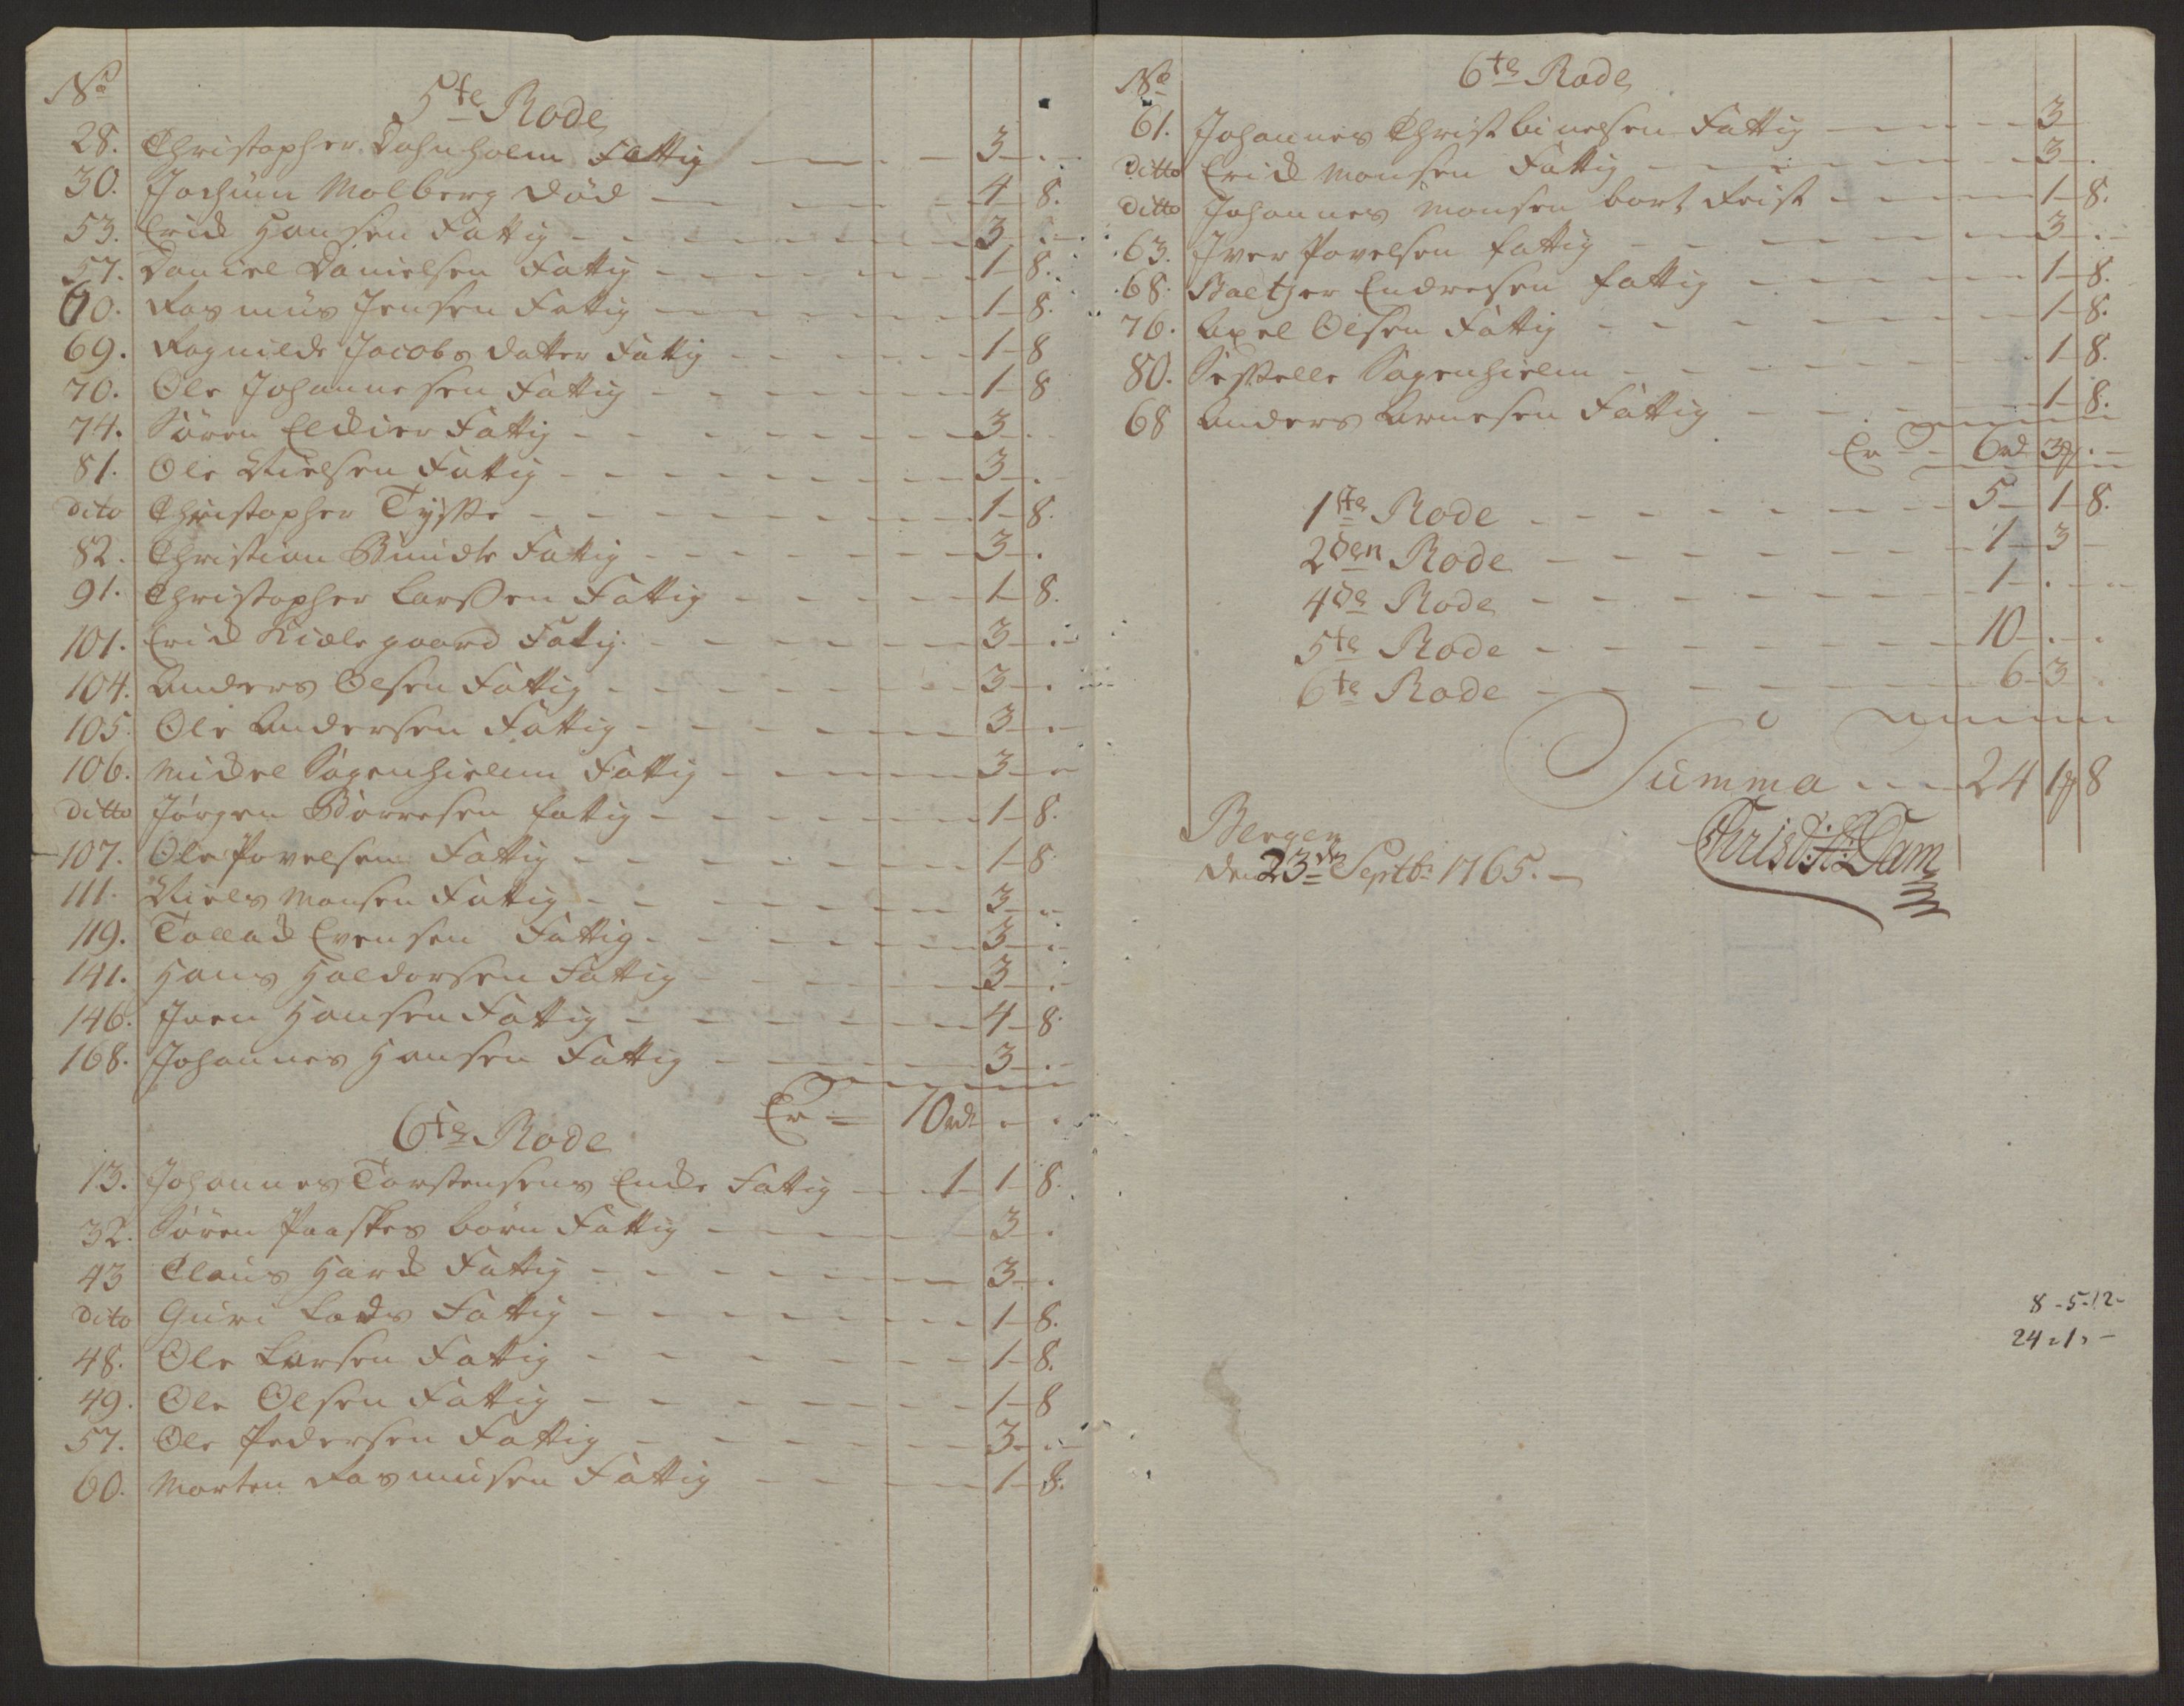 No
5te Rode
28. Christopher Dahnholm Fattig 3 .
30. Jochum Molberg död 4 8.
53. Erich Hansen Fattig 3 .
57. Daniel Danielsen Fattig 1 8.
60. Rasmus Jensen Fattig 1 8.
69. Ragnilde Jacobs datter Fattig 1 8
70. Ole Johannesen Fattig 1 8
74. Sören Fattig 3 .
81. Ole Nielsen Fattig 3 .
dito Christopher Tyste 1 8.
82. Christian Fattig 3 .
91. Christopher Larssen Fattig 1 8.
101. Erich Fattig 3 .
104. Anders Olsen Fattig 3 .
105. Ole Andersen Fattig 3 .
106. Michel Sagenhielm Fattig 3 .
ditto Jörgen Börresen fattig 1 8.
107. Ole Povelsen Fattig 1 8
111. Niels Monsen Fattig 3 .
119. Tollach Evensen Fattig 3 .
141. Hans Haldorsen Fattig 3 .
146. Joen Hansen Fattig 4 8.
168. Johannes Hansen Fattig 3 .
Er 10 rd . .
6te Rode
13. Johannes Torstensens Encke Fattig 1 1 8.
32. Sören Paaskes börn Fattig 3 .
43 Claus Hard Fattig 3 .
dito Guri Lads Fattig 1 8.
48. Ole Larsen Fattig 1 8.
49. Ole Olsen Fattig 1 8
57. Ole Pedersen Fattig 3 .
60. Morten Rasmusen Fattig 1 8.
No
6te Rode
61. Johannes Fattig 3
ditto Erich Monsen Fattig 3 .
ditto Johannes Monsen bort Reist 1 8.
63. Iver Povelsen fattig 3 .
68. Baltzer Endresen fattig 1 8.
76. Axel Olsen Fattig 1 8.
80. Sagenhielm 1 8.
68 Anders Arnesen Fattig 1 8.
Er 6 rd 3 .
1ste Rode 5 1 8.
2den Rode 1 3
4de Rode 1 .
5te Rode 10 . .
6te Rode 6 3 .
Summa 24 1 8
Bergen
den 23de Septbr 1765.
Christ: Dam
8 - 5 - 12 -
24 - 1 -